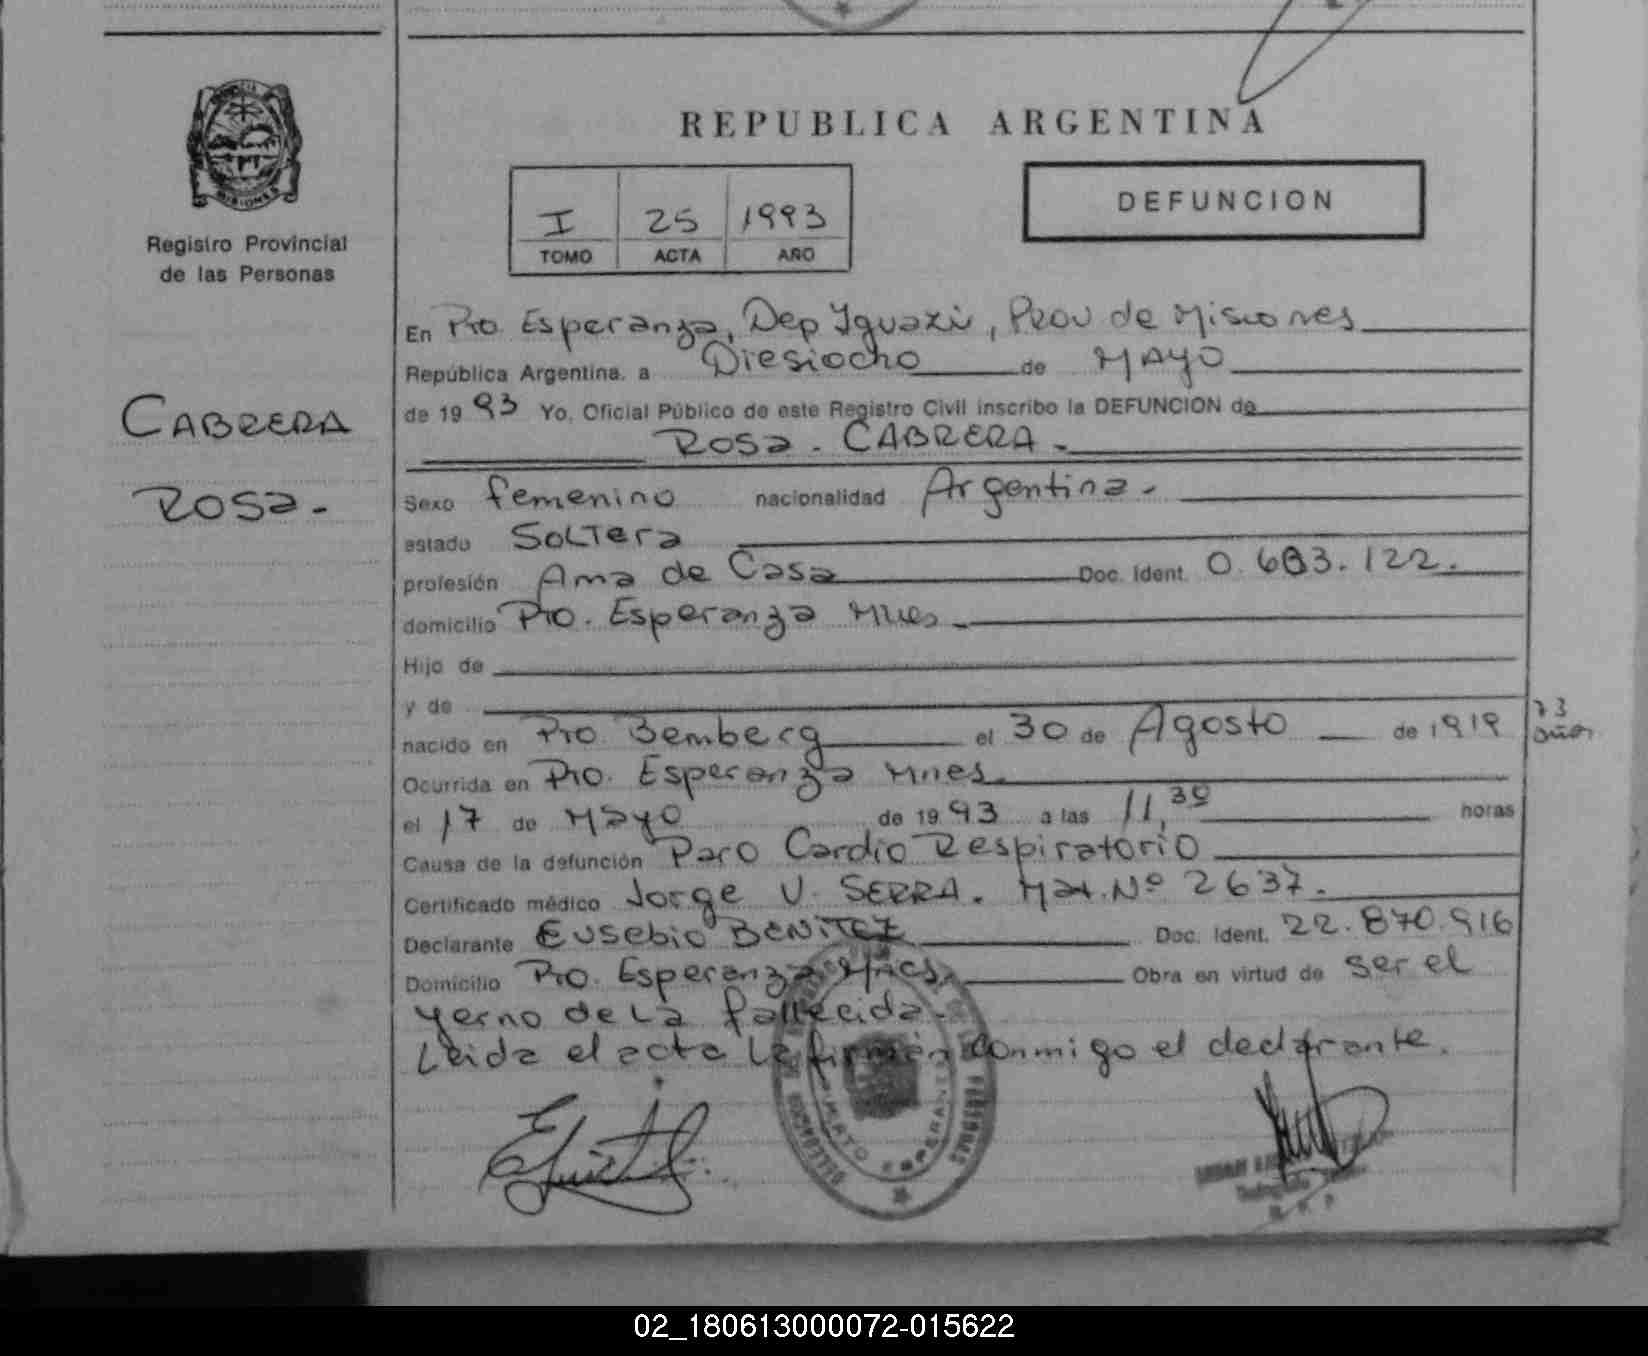 REPUBLICA ARGENTINA
MISIONES
Registro Provincial
de las Personas
I 25 1993
TOMO ACTA AÑO
DEFUNCION
CABRERA
ROSA.-
En Pto. Esperanza, Dep Iguazú, Prov de Misiones
República Argentina. a Diesiocho de MAYO
de 19 93 Yo, Oficial Público de este Registro Civil inscribo la DEFUNCION de
ROSA. CABRERA.
Sexo femenino nacionalidad Argentina.
estado SOLTera
profesión Ama de Casa Doc. Ident. 0.683.122.
domicilio Pto. Esperanza Mnes.
Hijo de
y de
nacido en Pto. Bemberg el 30 de Agosto de 1919
73
años
Ocurrida en Pto. Esperanza Mnes.
el 17 de Mayo de 19 93 a las 11,30 horas
Causa de la defunción Paro Cardio Respiratorio
Certificado médico Jorge V. SERRA. Mat. Nº 2637.
Declarante Eusebio BENITEZ Doc. Ident. 22.870.916
Domicilio Pto. Esperanza Mnes. Obra en virtud de ser el
yerno de La fallecida.
Leida el acta La firman Conmigo el declarante.
PUERTO ESPERANZA
02_180613000072-015622